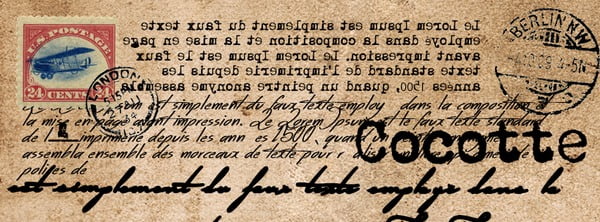 U.S. POSTAGE
24 CENTS 24
LONDON
BERLIN NW
Le Lorem Ipsum est simplement du faux texte
employé dans la composition et la mise en page
avant impression. Le Lorem Ipsum est le faux
texte standard de l'imprimerie depuis les
années 1500, quand un peintre anonyme assembla
est simplement du faux texte employ dans la composition
la mise en page avant impression. Le Lorem Ipsum est le faux texte standard
de l imprimerie depuis les ann es 1500, quand un
assembla ensemble des morceaux de texte pour r alis
polices de
Cocotte
est simplement du faux texte employ dans la